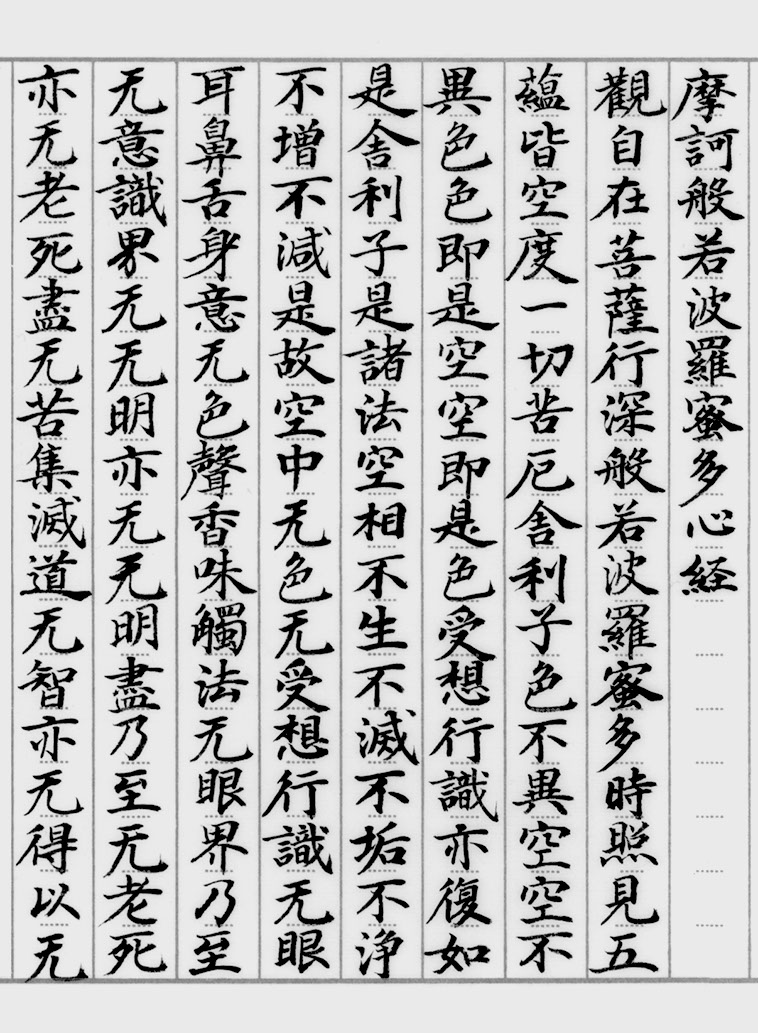 摩訶般若波羅蜜多心経
觀自在菩薩行深般若波羅蜜多時照見五
蘊皆空度一切苦厄舎利子色不異空空不
異色色即是空空即是色受想行識亦復如
是舎利子是諸法空相不生不滅不垢不浄
不增不減是故空中无色无受想行識无眼
耳鼻舌身意无色聲香味觸法无眼界乃至
无意識界无无明亦无无明盡乃至无老死
亦无老死盡无苦集滅道无智亦无得以无